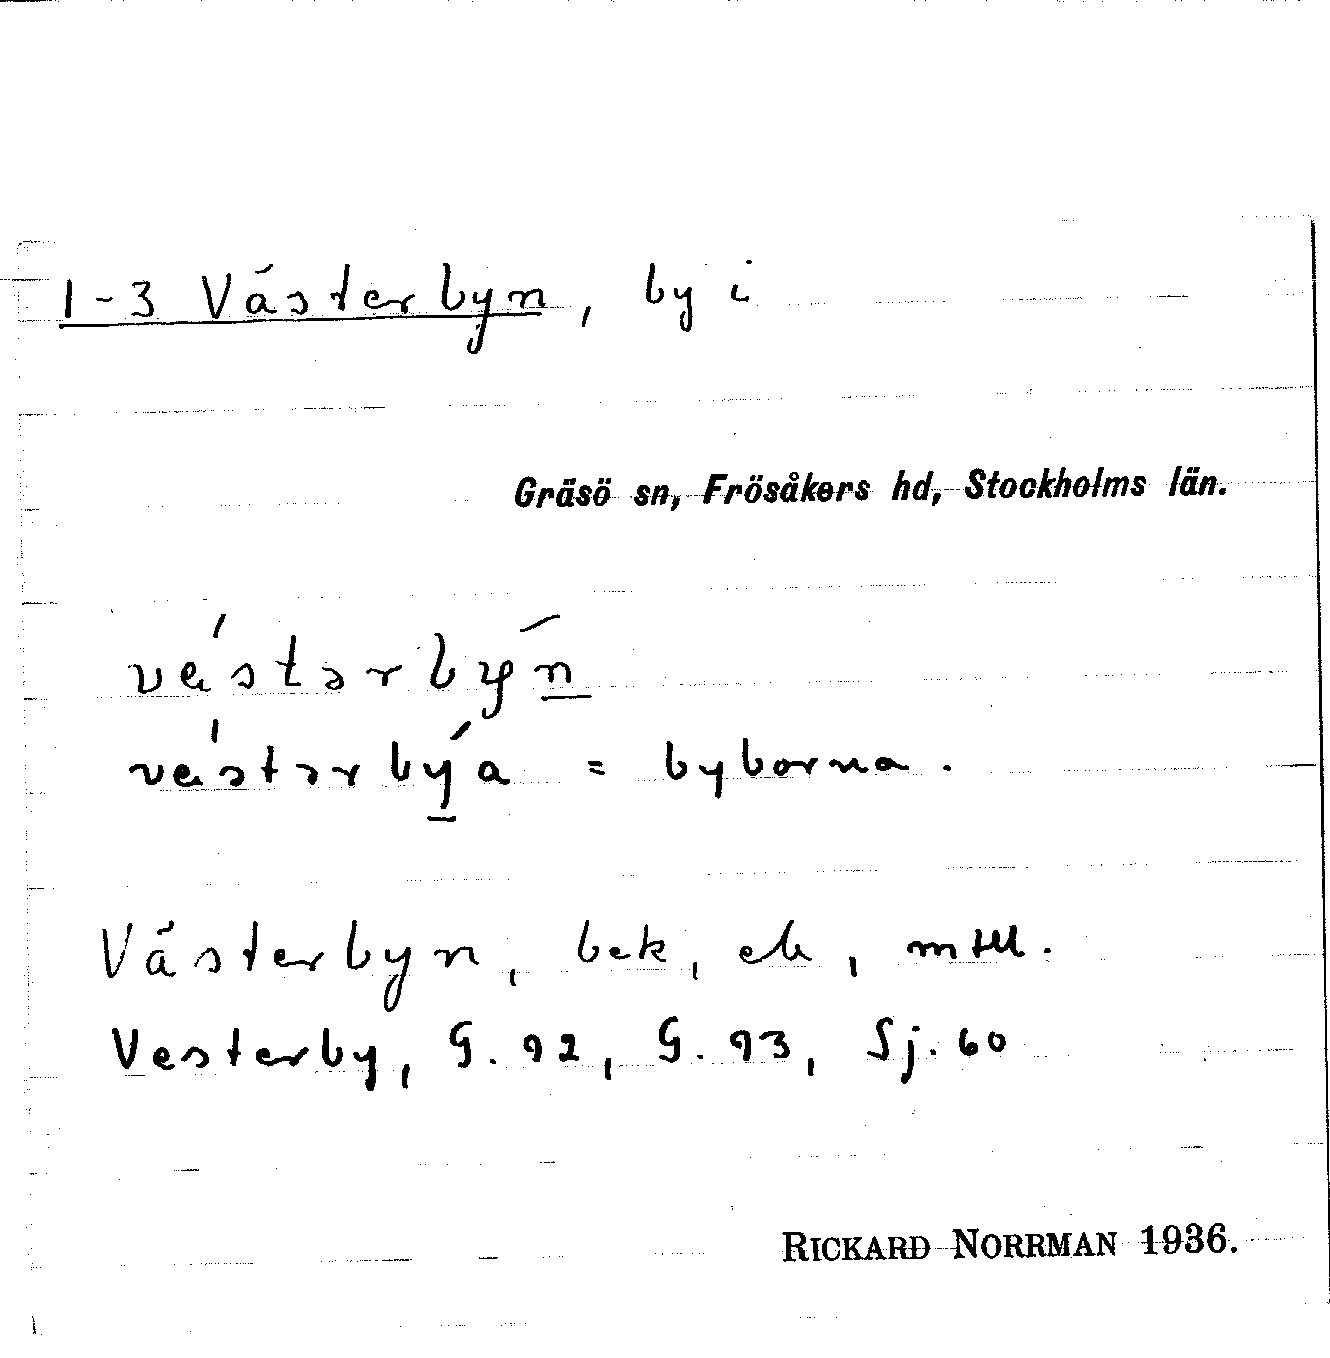 1-3 Västerbyn, by i
Gräsö sn, Frösåkers hd, Stockholms län.
vástərbýn
vástərbýa = byborna.
Västerbyn, bek, ek, mtll.
Vesterby, G. 92, G. 93, Sj. 60
RICKARD NORRMAN 1936.